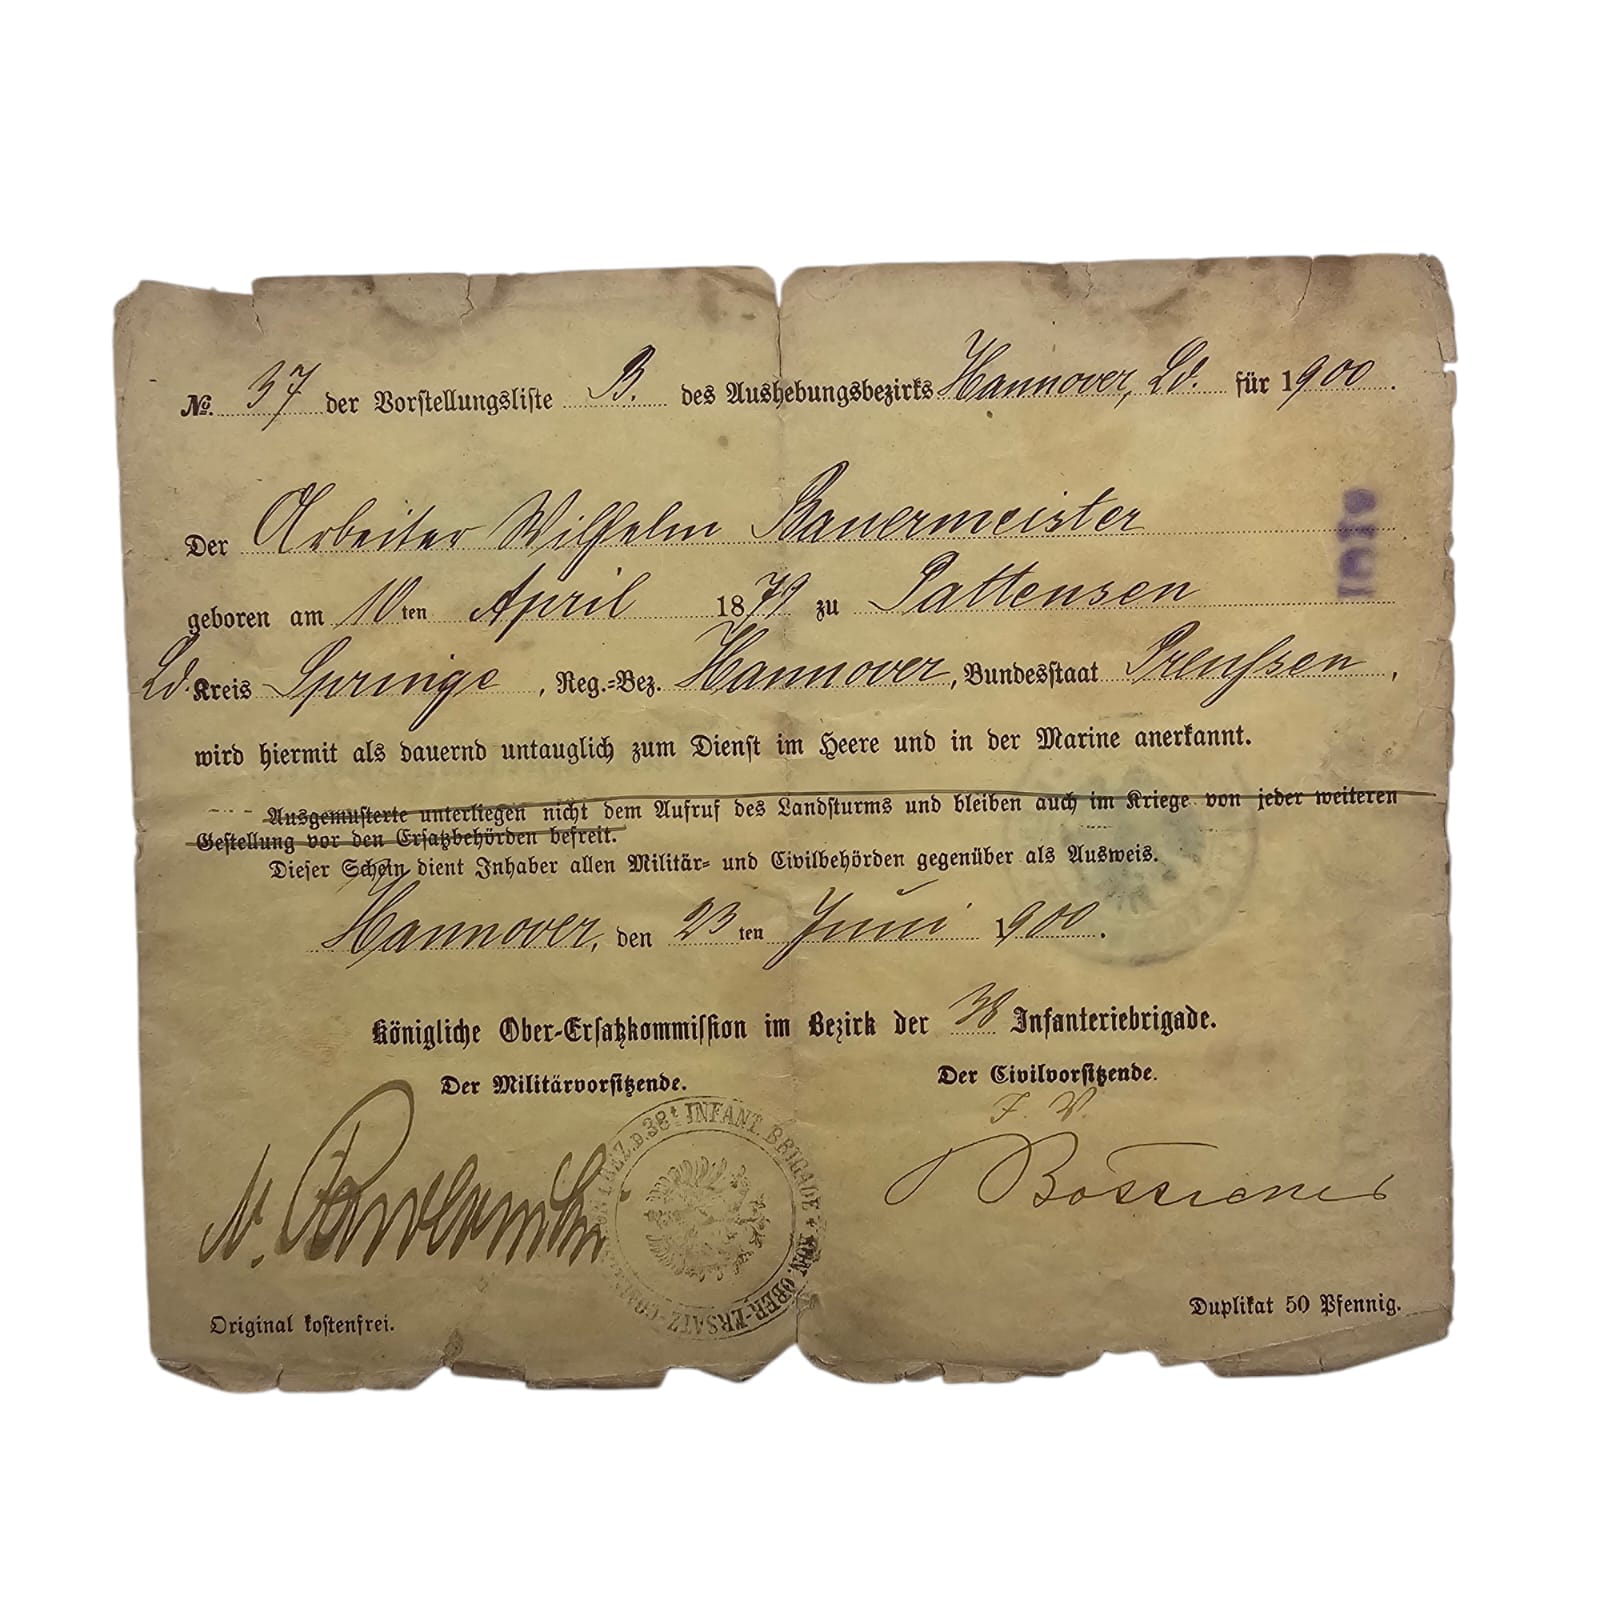 No. 37 der Vorstellungsliste B. des Aushebungsbezirks Hannover, Ld. für 1900.
Der Arbeiter Wilhelm Bauermeister
geboren am 10ten April 1879 zu Pattensen
Ld. Kreis Springe, Reg.-Bez. Hannover, Bundesstaat Preußen,
wird hiermit als dauernd untauglich zum Dienst im Heere und in der Marine anerkannt.
Ausgemusterte unterliegen nicht dem Aufruf des Landsturms und bleiben auch im Kriege von jeder weiteren
Gestellung vor den Ersatzbehörden befreit.
Dieser Schein dient Inhaber allen Militär- und Civilbehörden gegenüber als Ausweis.
Hannover, den 23ten Juni 1900.
Königliche Ober-Ersatzkommission im Bezirk der 38 Infanteriebrigade.
Der Militärvorsitzende. Der Civilvorsitzende.
I. V.
KÖN. OBER-ERSATZ-COMMISSION I. BEZ. D. 38t INFANT. BRIGADE
Original kostenfrei. Duplikat 50 Pfennig.